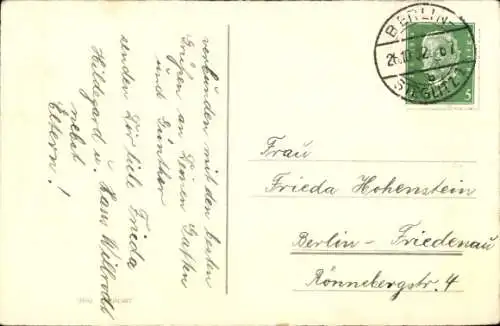 verbunden mit den besten
Grüßen an Deinen Gatten
und Günther
senden Dir liebe Frieda
Hildegard u. Hans Willrodt
nebst
Eltern!
BERLIN-
STEGLITZ
5
Frau
Frieda Hohenstein
Berlin-Friedenau
Rönnebergstr. 4